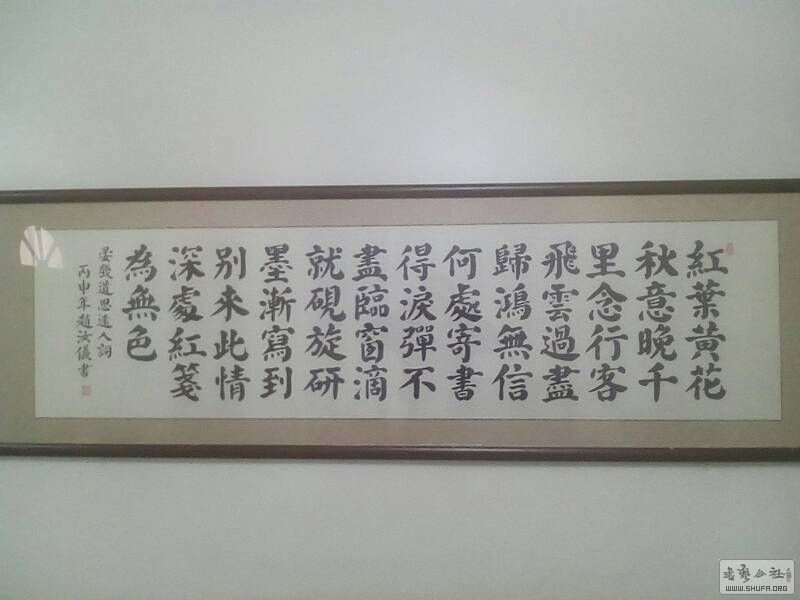 紅葉黃花
秋意晚千
里念行客
飛雲過盡
歸鴻無信
何處寄書
得淚彈不
盡臨窗滴
就硯旋研
墨漸寫到
別來此情
深處紅箋
為無色
晏幾道思遠人詞
丙申年趙汝儀書
WWW.SHUFA.ORG